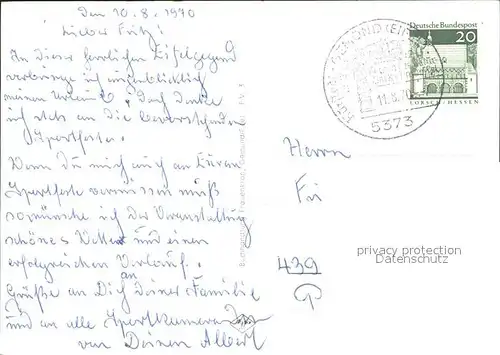 den 10.8.1970
Lieber Fritz!
In dieser herrlichen Eifelgegend
verbringe ich augenblicklich
meinen Urlaub. Doch denke
ich stets an die bevorstehenden
Sportfeste.
Wenn Du mich auch an Euren
Sportfeste vermissen muß
so wünsche ich der Veranstaltung
schönes Wetter und einen
erfolgreichen Verlauf.
Grüße an Dich an Deiner Familie
und an alle Sportkameraden
von Deinen Albert
GEMÜND (EIFEL)
11.8.70
5373
Deutsche Bundespost
20
LORSCH/HESSEN
Herrn
Fri
439
privacy protection
Datenschutz